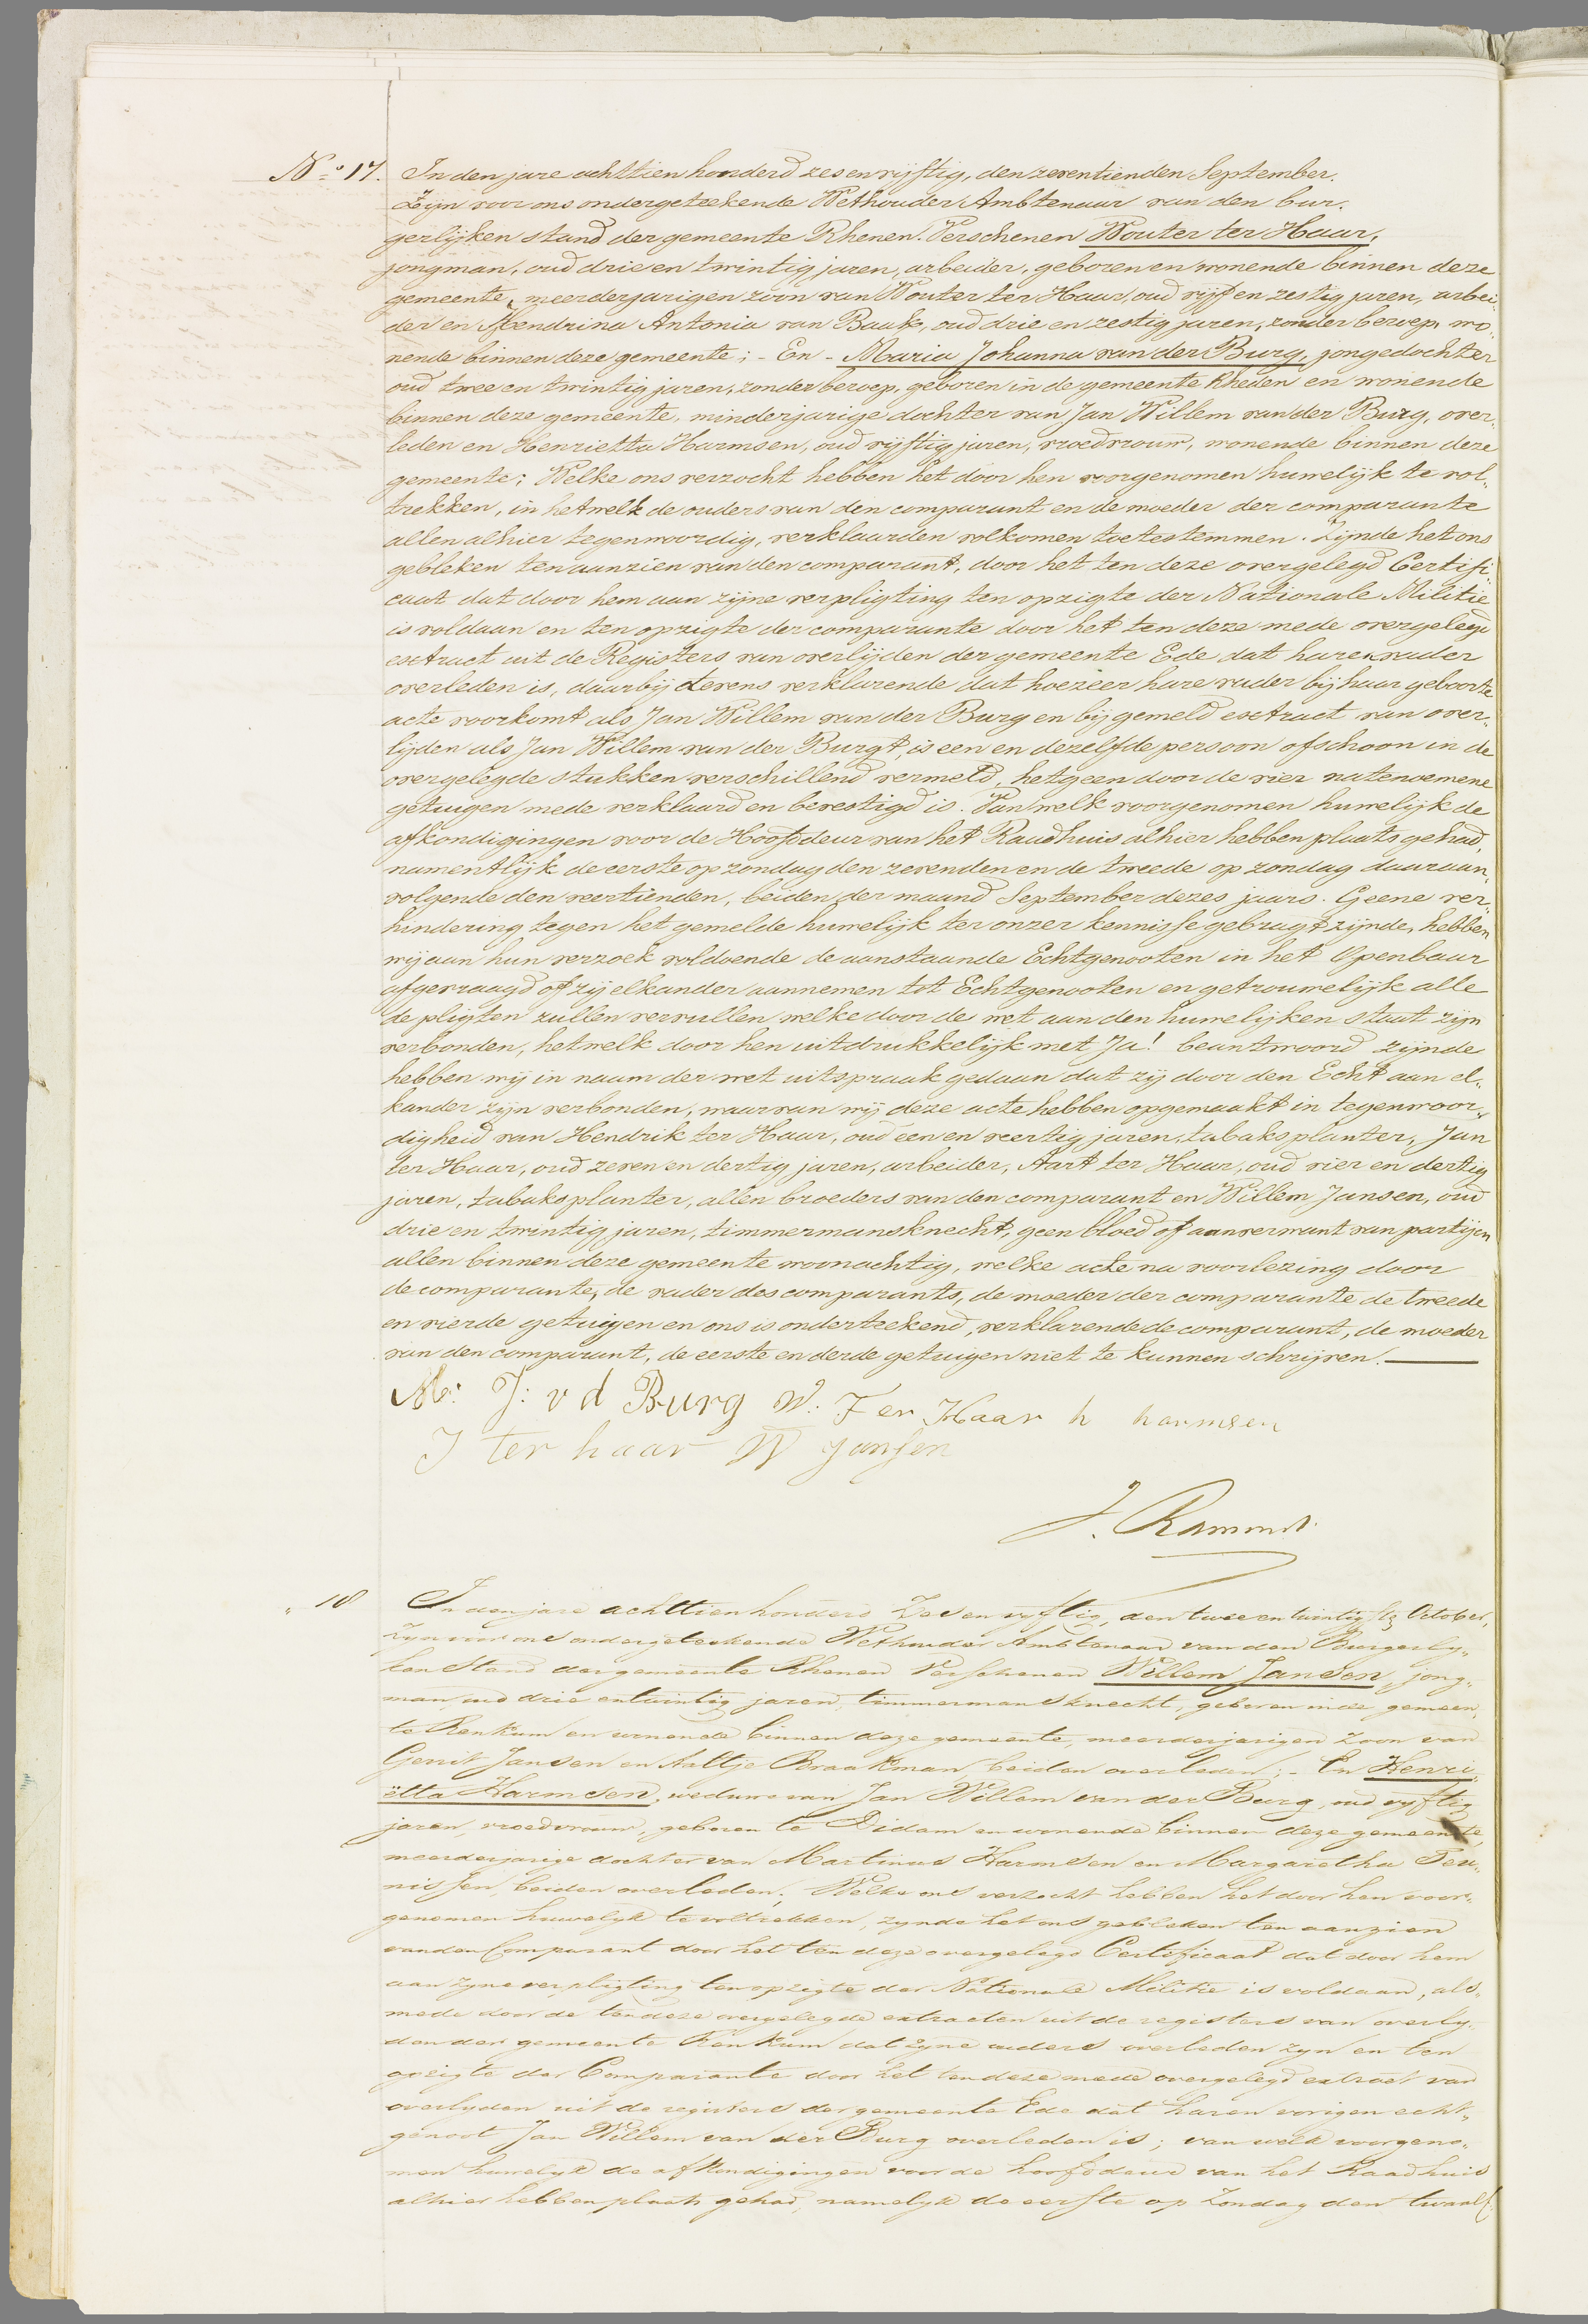 No 17. In den jare achttien honderd zes en vijftig, den zeventienden September.
Zijn voor ons ondergeteekende Wethouder Ambtenaar van den bur-
gerlijken stand der gemeente Rhenen. Verschenen Wouter ter Haar,
jongman, oud drie en twintig jaren, arbeider, geboren en wonende binnen deze
gemeente, meerderjarigen zoon van Wouter ter Haar, oud vijf en zestig jaren, arbei-
der en Hendrina Antonia van Baak, oud drie en zestig jaren, zonder beroep, wo-
nende binnen deze gemeente; - En - Maria Johanna van der Burg, jongedochter
oud twee en twintig jaren, zonder beroep, geboren in de gemeente Rheden en wonende
binnen deze gemeente, minderjarige dochter van Jan Willem van der Burg, over-
leden en Henrietta Harmsen, oud vijftig jaren, vroedvrouw, wonende binnen deze
gemeente; Welke ons verzocht hebben het door hen voorgenomen huwelijk te vol-
trekken, in hetwelk de ouders van den comparant en de moeder der comparante
allen alhier tegenwoordig, verklaarden volkomen toetestemmen. Zijnde het ons
gebleken ten aanzien van den comparant, door het ten deze overgelegd Certifi-
caat dat door hem aan zijne verpligting ten opzigte der Nationale Militie
is voldaan en ten opzigte der comparante door het ten deze mede overgelegd
extract uit de Registers van overlijden der gemeente Ede dat haren vader
overleden is, daarbij tevens verklarende dat hoezeer hare vader bij haar geboorte
acte voorkomt als Jan Willem van der Burg en bij gemeld extract van over-
lijden als Jan Willem van der Burgt, is een en dezelfde persoon ofschoon in de
overgelegde stukken verschillend vermeld, hetgeen door de vier natenoemene
getuigen mede verklaard en bevestigd is. Van welk voorgenomen huwelijk de
afkondigingen voor de Hoofddeur van het Raadhuis alhier hebben plaats gehad,
namentlijk de eerste op zondag den zevenden en de tweede op zondag daaraan-
volgende den veertienden, beiden der maand September dezes jaars. Geene ver-
hindering tegen het gemelde huwelijk ter onzer kennisse gebragt zijnde, hebben
wij aan hun verzoek voldoende de aanstaande Echtgenooten in het Openbaar
afgevraagd of zij elkander aannemen tot Echtgenooten en getrouwelijk alle
de pligten zullen vervullen welke door de wet aan den huwelijken staat zijn
verbonden, hetwelk door hen uitdrukkelijk met Ja! beantwoord zijnde
hebben wij in naam der wet uitspraak gedaan dat zij door den Echt aan el-
kander zijn verbonden, waarvan wij deze acte hebben opgemaakt in tegenwoor-
digheid van Hendrik ter Haar, oud een en veertig jaren, tabaksplanter, Jan
ter Haar, oud zeven en dertig jaren, arbeider, Aart ter Haar, oud vier en dertig
jaren, tabaksplanter, allen broeders van den comparant en Willem Jansen, oud
drie en twintig jaren, timmermansknecht, geen bloed of aanverwant van partijen
allen binnen deze gemeente woonachtig, welke acte na voorlezing door
de comparante, de vader des comparants, de moeder der comparante de tweede
en vierde getuigen en ons is onderteekend, verklarende de comparant, de moeder
van den comparant, de eerste en derde getuigen niet te kunnen schrijven.
M: J: v d Burg W: Ter Haar h harmsen
J ter haar W Jansen
J. Ramondt
" 18 In den jare achttien honderd Zes en vyftig, den twee en twintigste October,
Zyn voor ons ondergeteekende Wethouder Ambtenaar van den Burgerly-
ken Stand der gemeente Rhenen Verschenen Willem Jansen, jong-
man, oud drie en twintig jaren, timmermansknecht, geboren in de gemeen-
te Renkum en wonende binnen deze gemeente, meerderjarigen Zoon van
Gerrit Jansen en Aaltje Braakman, beiden overleden; - En Henri-
ëtta Harmsen, weduwe van Jan Willem van der Burg, oud vyftig
jaren, vroedvrouw, geboren te Didam en wonende binnen deze gemeente,
meerderjarige dochter van Martinus Harmsen en Margaretha Teu-
nissen, beiden overleden; Welke ons verzocht hebben het door hen voor-
genomen huwelyk te voltrekken, zynde het ons gebleken ten aanzien
van den Comparant door het ten deze overgelegd Certificaat dat door hem
aan zyne verpligting ten opzigte der Nationale Militie is voldaan, als-
mede door de ten deze overgelegde extracten uit de registers van overly-
den der gemeente Renkum dat zyne ouders overleden zyn en ten
opzigte der Comparante door het ten deze mede overgelegd extract van
overlyden uit de registers der gemeente Ede dat haren vorigen echt-
genoot Jan Willem van der Burg overleden is; van welk voorgeno-
men huwelyk de afkondigingen voor de hoofddeur van het Raadhuis
alhier hebben plaats gehad, namelyk de eerste op Zondag den twaalf